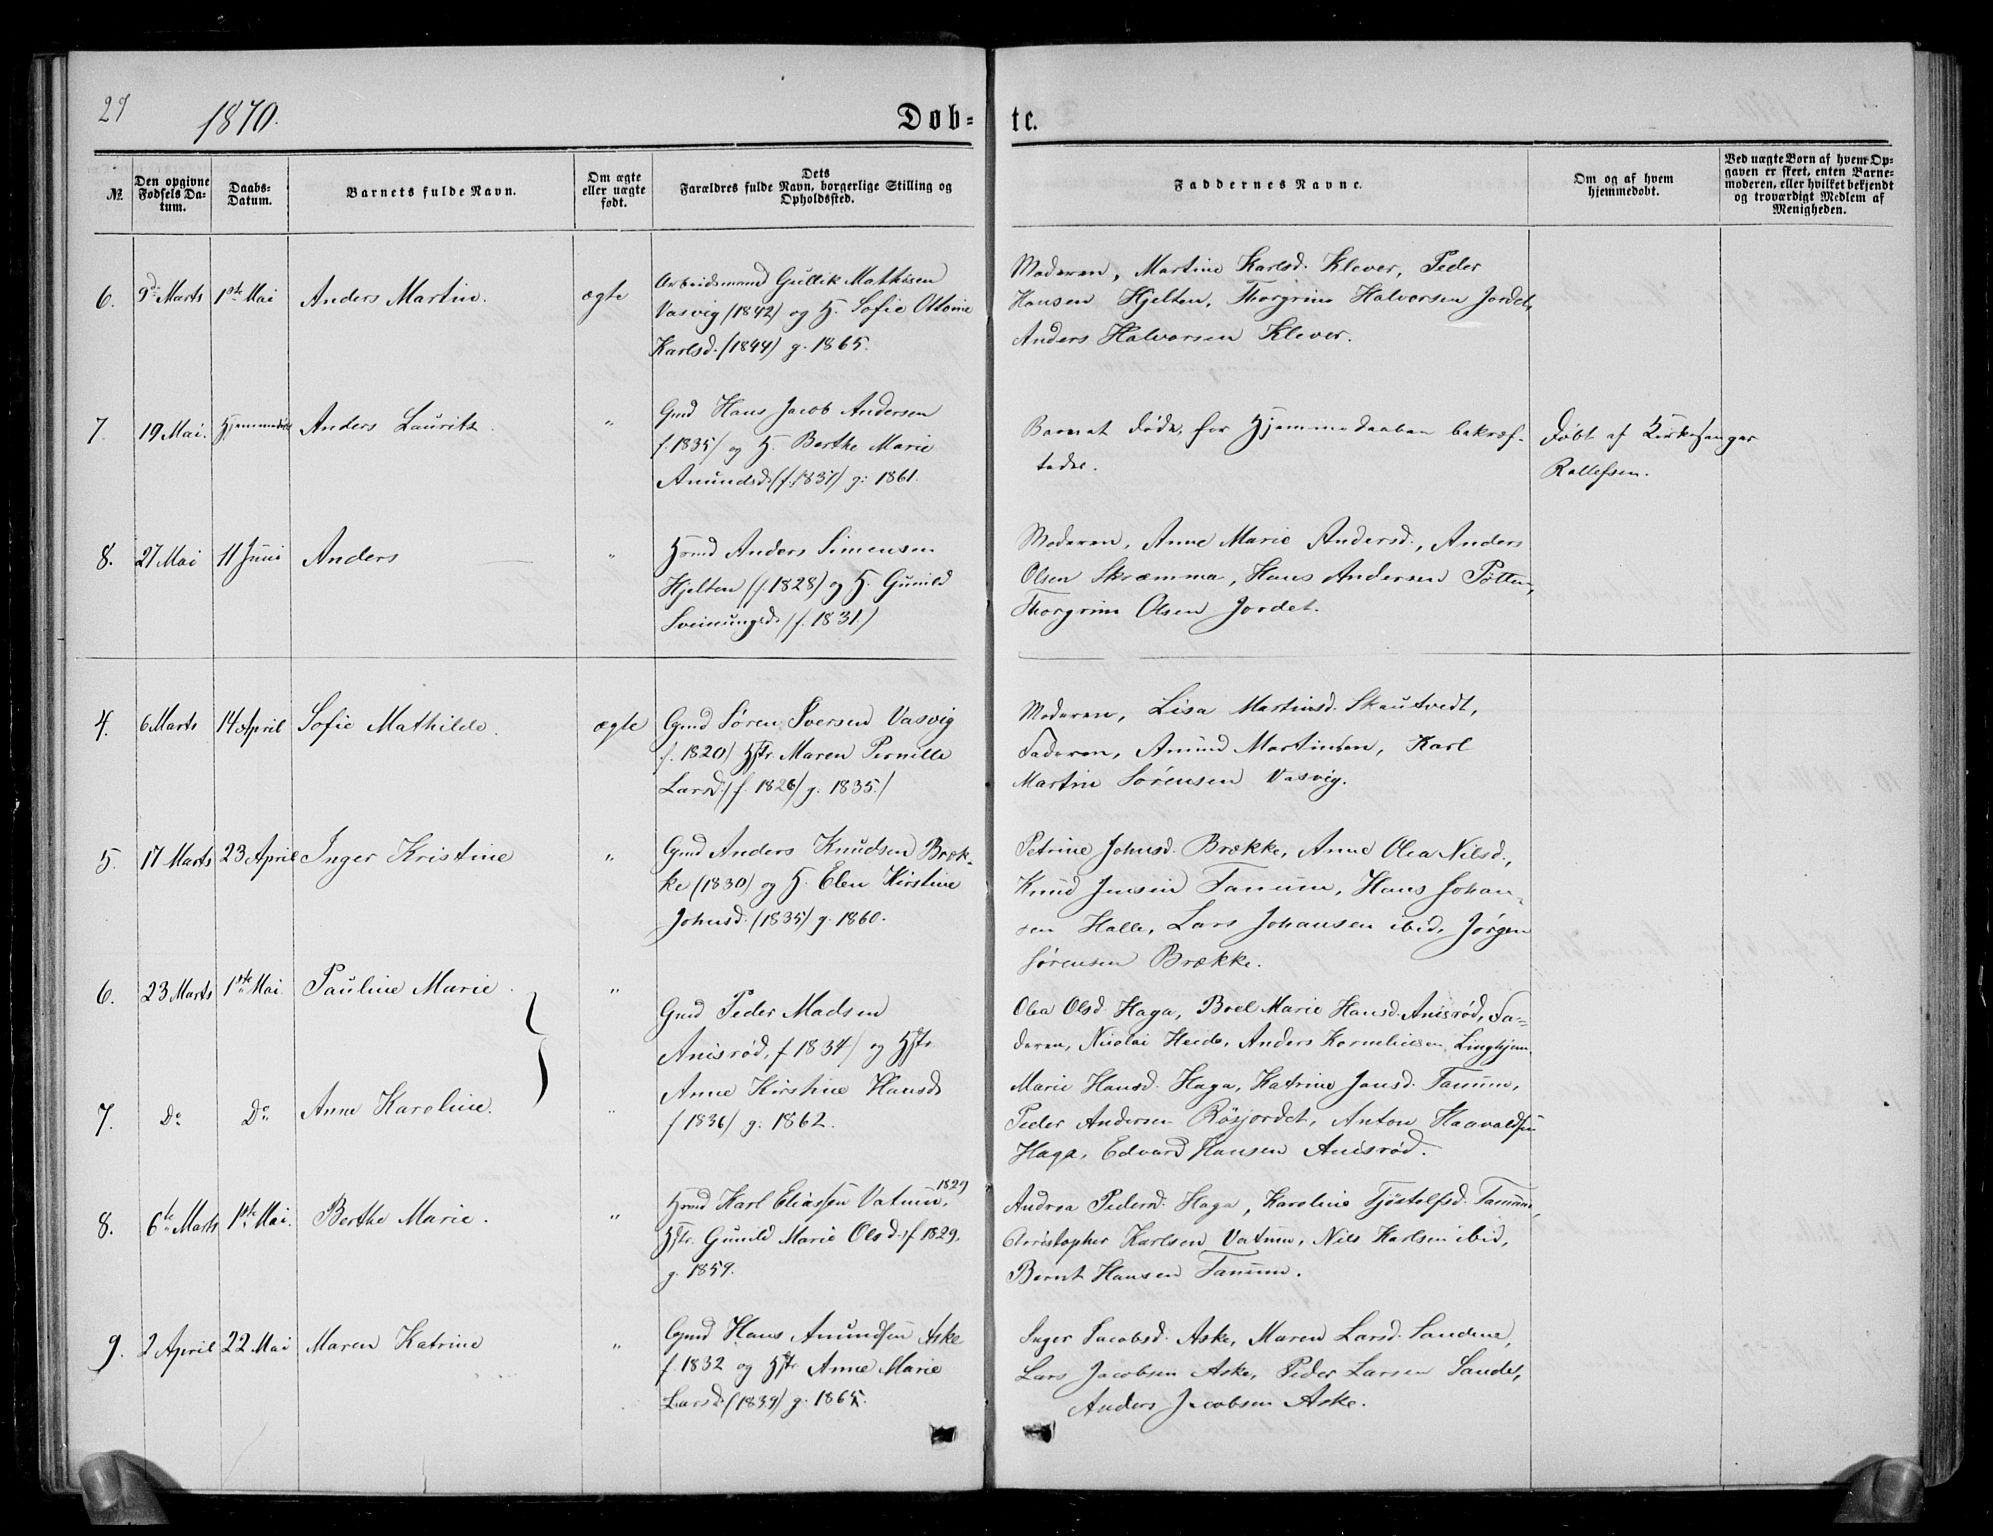 27
1870.
Døb- te.
№.
Den opgivne Fødsels Da-tum.
Daabs-Datum.
Barnets fulde Navn.
Om ægte eller uægte født.
Dets Forældres fulde Navn, borgerlige Stilling og Opholdssted.
Faddernes Navne.
Om og af hvem hjemmedøbt.
Ved uægte Børn af hvem Op-gaven er skeet, enten Barne-moderen, eller hvilket bekjendt og troværdigt Medlem af Menigheden.
6. 9de Marts 1ste Mai Anders Martin. ægte
Arbeidsmand Gullik Mathisen
Vasvig (1842) og H. Sofie Ottomine
Karlsd. (1844) g. 1865.
Moderen, Martine Karlsd. Klever, Peder
Hansen Hjelten, Thorgrim Halvorsen Jordet,
Anders Halvorsen Klever.
7. 19 Mai. Hjemmedøbt Anders Lauritz. "
Gmd Hans Jacob Andersen
f. 1835) og H. Berthe Marie
Amundsd. (f. 1837) g: 1861.
Barnet døde, før Hjemmedaaben bekræf-
tedes.
Døbt af Kirkesanger
Rollefsen.
8. 27 Mai 11 Juni Anders "
Hmd Anders Simensen
Hjelten (f. 1828) og H. Gunild
Sveinungsd. (f. 1831.)
Moderen, Anne Marie Andersd., Anders
Olsen Skræmma, Hans Andersen Pøtten,
Thorgrim Olsen Jordet.
4. 6 Marts 14 April Sofie Mathilde. ægte
Gmd Søren Iversen Vasvig
f. 1820) Hstr. Maren Pernille
Larsd. (f. 1826) g. 1835.)
Moderen, Lisa Martinsd. Skautvedt,
Faderen, Amund Martinsen, Karl
Martin Sørensen Vasvig.
5. 17 Marts 23 April Inger Kristine "
Gmd Anders Knudsen Bræk-
ke (1830) og H. Elen Kirstine
Johnsd. (1835) g. 1860.
Petrine Johnsd. Brække, Anne Olea Nilsd.,
Knud Jensen Tanum, Hans Johan-
sen Halle, Lars Johansen ibid, Jørgen
Sørensen Brække.
6. 23 Marts 1ste Mai. Pauline Marie. "
Gmd Peder Madsen
Anisrød, f 1834) og Hstr.
Olea Olsd Haga, Boel Marie Hansd. Anisrød, Fa-
deren, Nicolai Heide, Anders Korneliusen Linghjem.
7. Do Do Anne Karoline. "
Anne Kirstine Hansd
f 1836) g. 1862.
Marie Hansd. Haga, Katrine Jansd. Tanum,
Peder Andersen Røsjordet, Anton Haavaldsen
Haga, Edvard Hansen Anisrød.
8. 6te Marts 1ste Mai. Berthe Marie. "
Hmd Karl Eliassen Vatum, 1829
Hstr. Gunild Marie Olsd. f 1829.
g. 1859.
Andrea Pedersd. Haga, Karoline Tjøstolfsd. Tanum,
Christopher Karlsen Vatum, Nils Karlsen ibid,
Bernt Hansen Tanum.
9. 2 April 22 Mai Maren Katrine "
Gmd Hans Amundsen Aske
f. 1832 og Hstr Anne Marie
Larsd. (1839) g. 1865.
Inger Jacobsd. Aske, Maren Larsd. Sandene,
Lars Jacobsen Aske, Peder Larsen Sandet,
Anders Jacobsen Aske.